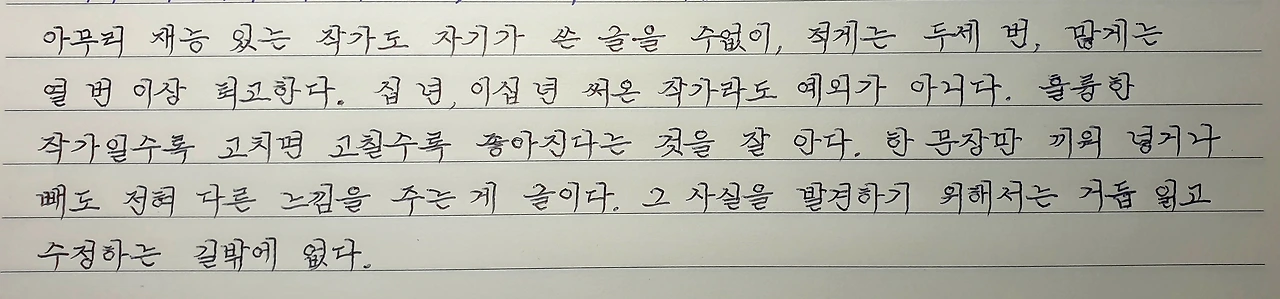 아무리 재능 있는 작가도 자기가 쓴 글을 수없이, 적게는 두세 번, 많게는
열 번 이상 퇴고한다. 십 년, 이십 년 써온 작가라도 예외가 아니다. 훌륭한
작가일수록 고치면 고칠수록 좋아진다는 것을 잘 안다. 한 문장만 끼워 넣거나
빼도 전혀 다른 느낌을 주는 게 글이다. 그 사실을 발견하기 위해서는 거듭 읽고
수정하는 길밖에 없다.